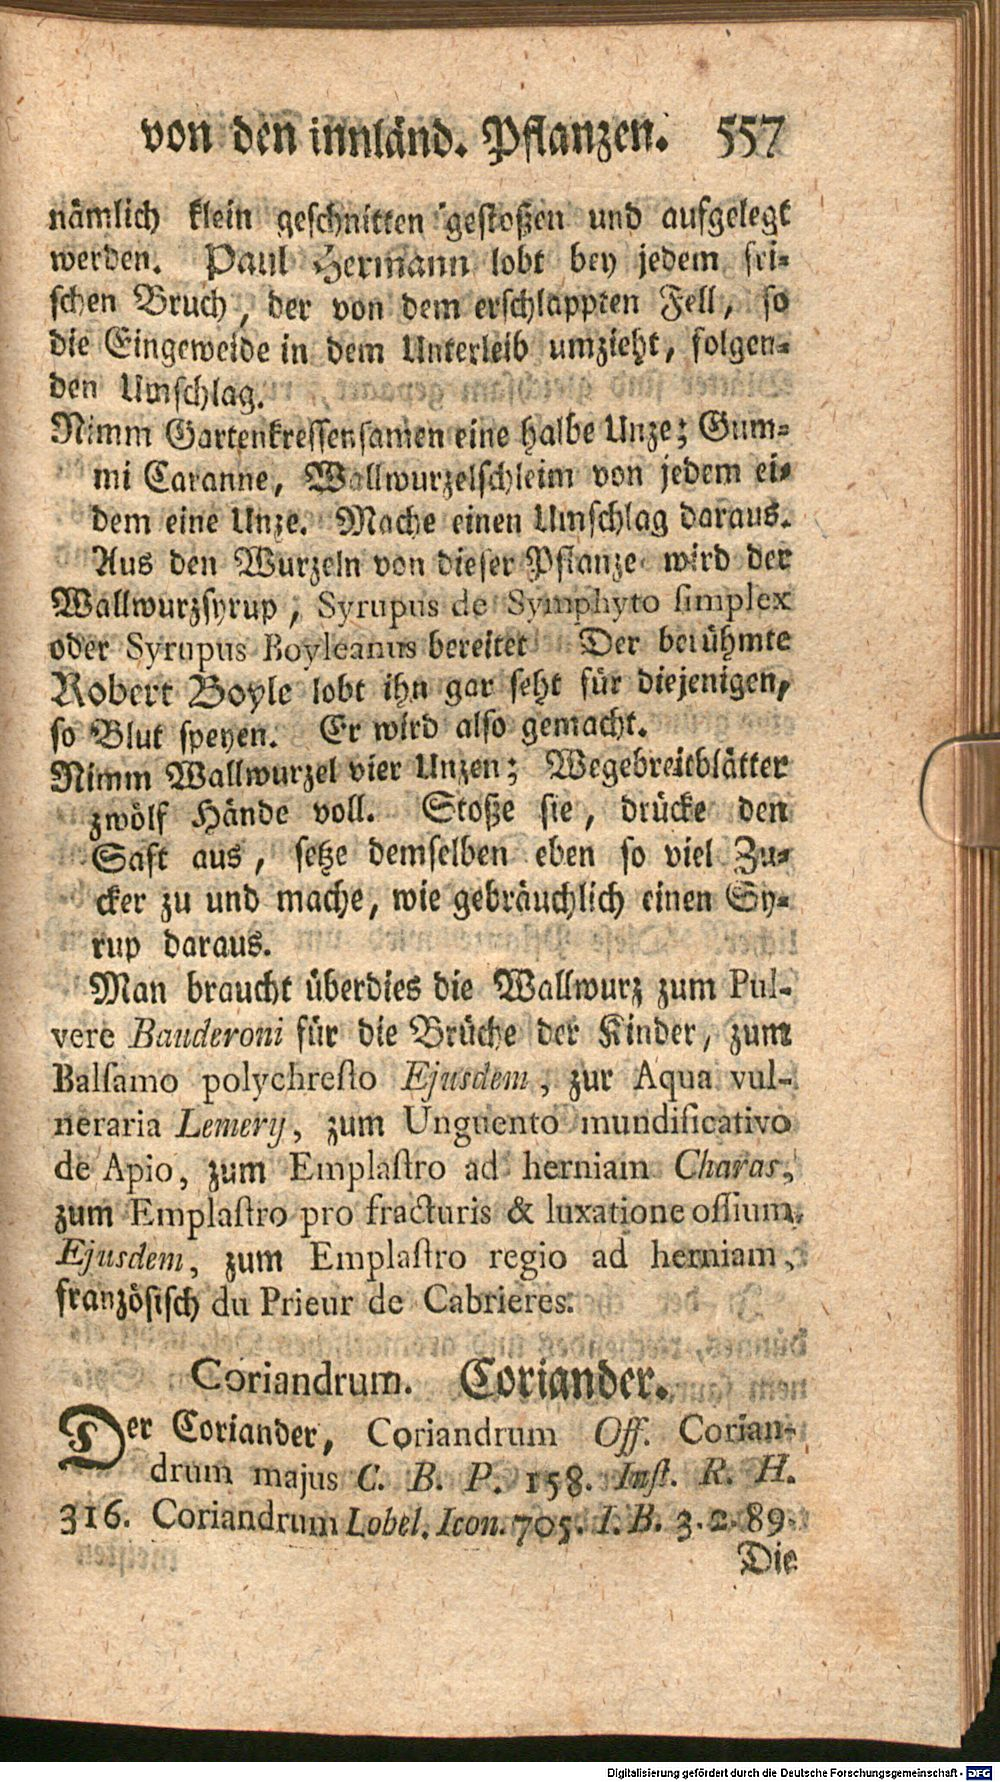 von den innländ. Pflanzen. 557
nämlich klein geschnitten gestoßen und aufgelegt
werden. Paul Hermann lobt bey jedem fri-
schen Bruch, der von dem erschlappten Fell, so
die Eingeweide in dem Unterleib umzieht, folgen-
den Umschlag.
Nimm Gartenkressensamen eine halbe Unze; Gum-
mi Caranne, Wallwurzelschleim von jedem ei-
dem eine Unze. Mache einen Umschlag daraus.
Aus den Wurzeln von dieser Pflanze wird der
Wallwurzsyrup, Syrupus de Symphyto simplex
oder Syrupus Boyleanus bereitet Der berühmte
Robert Boyle lobt ihn gar seht für diejenigen,
so Blut speyen. Er wird also gemacht.
Nimm Wallwurzel vier Unzen; Wegebreitblätter
zwölf Hände voll. Stoße sie, drücke den
Saft aus, setze demselben eben so viel Zu-
cker zu und mache, wie gebräuchlich einen Sy-
rup daraus.
Man braucht überdies die Wallwurz zum Pul-
vere Bauderoni für die Brüche der Kinder, zum
Balsamo polychresto Ejusdem, zur Aqua vul-
neraria Lemery, zum Unguento mundificativo
de Apio, zum Emplastro ad herniam Charas,
zum Emplastro pro fracturis & luxatione ossium,
Ejusdem, zum Emplastro regio ad herniam,
französisch du Prieur de Cabrieres.
Coriandrum. Coriander.
Der Coriander, Coriandrum Off. Corian-
drum majus C. B. P. 158. Inst. R. H.
316. Coriandrum Lobel. Icon. 705. I. B. 3. 2. 89.
Die
Digitalisierung gefördert durch die Deutsche Forschungsgemeinschaft - DFG